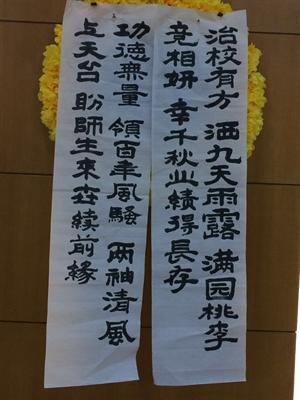 治校有方 洒九天雨露 满园桃李
竞相妍 幸千秋业绩得長存
功德無量 領百年風騷 兩袖清風
上天台 盼師生來世續前緣